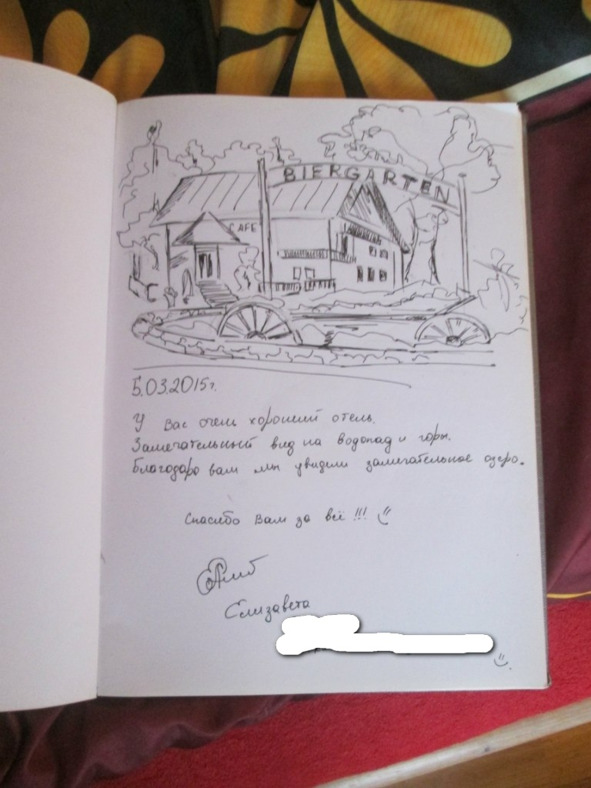 BIERGARTEN
CAFE
5.03.2015г.
У вас очень хороший отель.
Замечательный вид на водопад и горы.
Благодаро вам мы увидили замечательное озеро.
Спасибо Вам за всё !!!
Елизавета